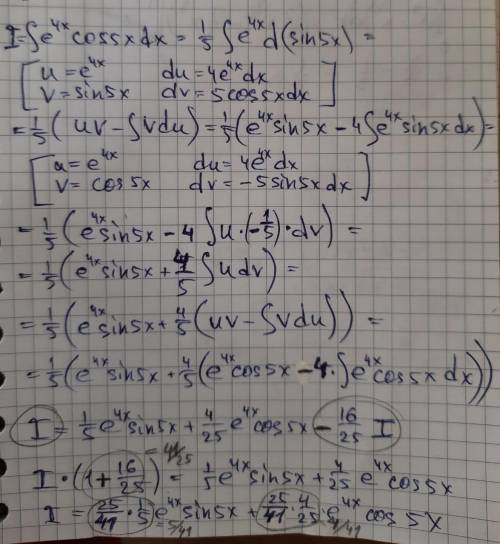 I=∫e^{4x}cos5xdx = 1/5 ∫e^{4x}d(sin5x) =
[u = e^{4x} du = 4e^{4x}dx
v = sin5x dv = 5cos5xdx]
= 1/5 (uv - ∫vdu) = 1/5 (e^{4x}sin5x - 4∫e^{4x}sin5xdx) =
[u = e^{4x} du = 4e^{4x}dx
v = cos5x dv = -5sin5xdx]
= 1/5 (e^{4x}sin5x - 4 ∫u·(-1/5)·dv) =
= 1/5 (e^{4x}sin5x + 4/5 ∫udv) =
= 1/5 (e^{4x}sin5x + 4/5 (uv - ∫vdu)) =
= 1/5 (e^{4x}sin5x + 4/5 (e^{4x}cos5x - 4·∫e^{4x}cos5xdx))
I = 1/5 e^{4x}sin5x + 4/25 e^{4x}cos5x - 16/25 I
= 41/25
I·(1+16/25) = 1/5 e^{4x}sin5x + 4/25 e^{4x}cos5x
I = 25/41·1/5 e^{4x}sin5x + 25/41·4/25·e^{4x}cos5x
= 5/41 4/41